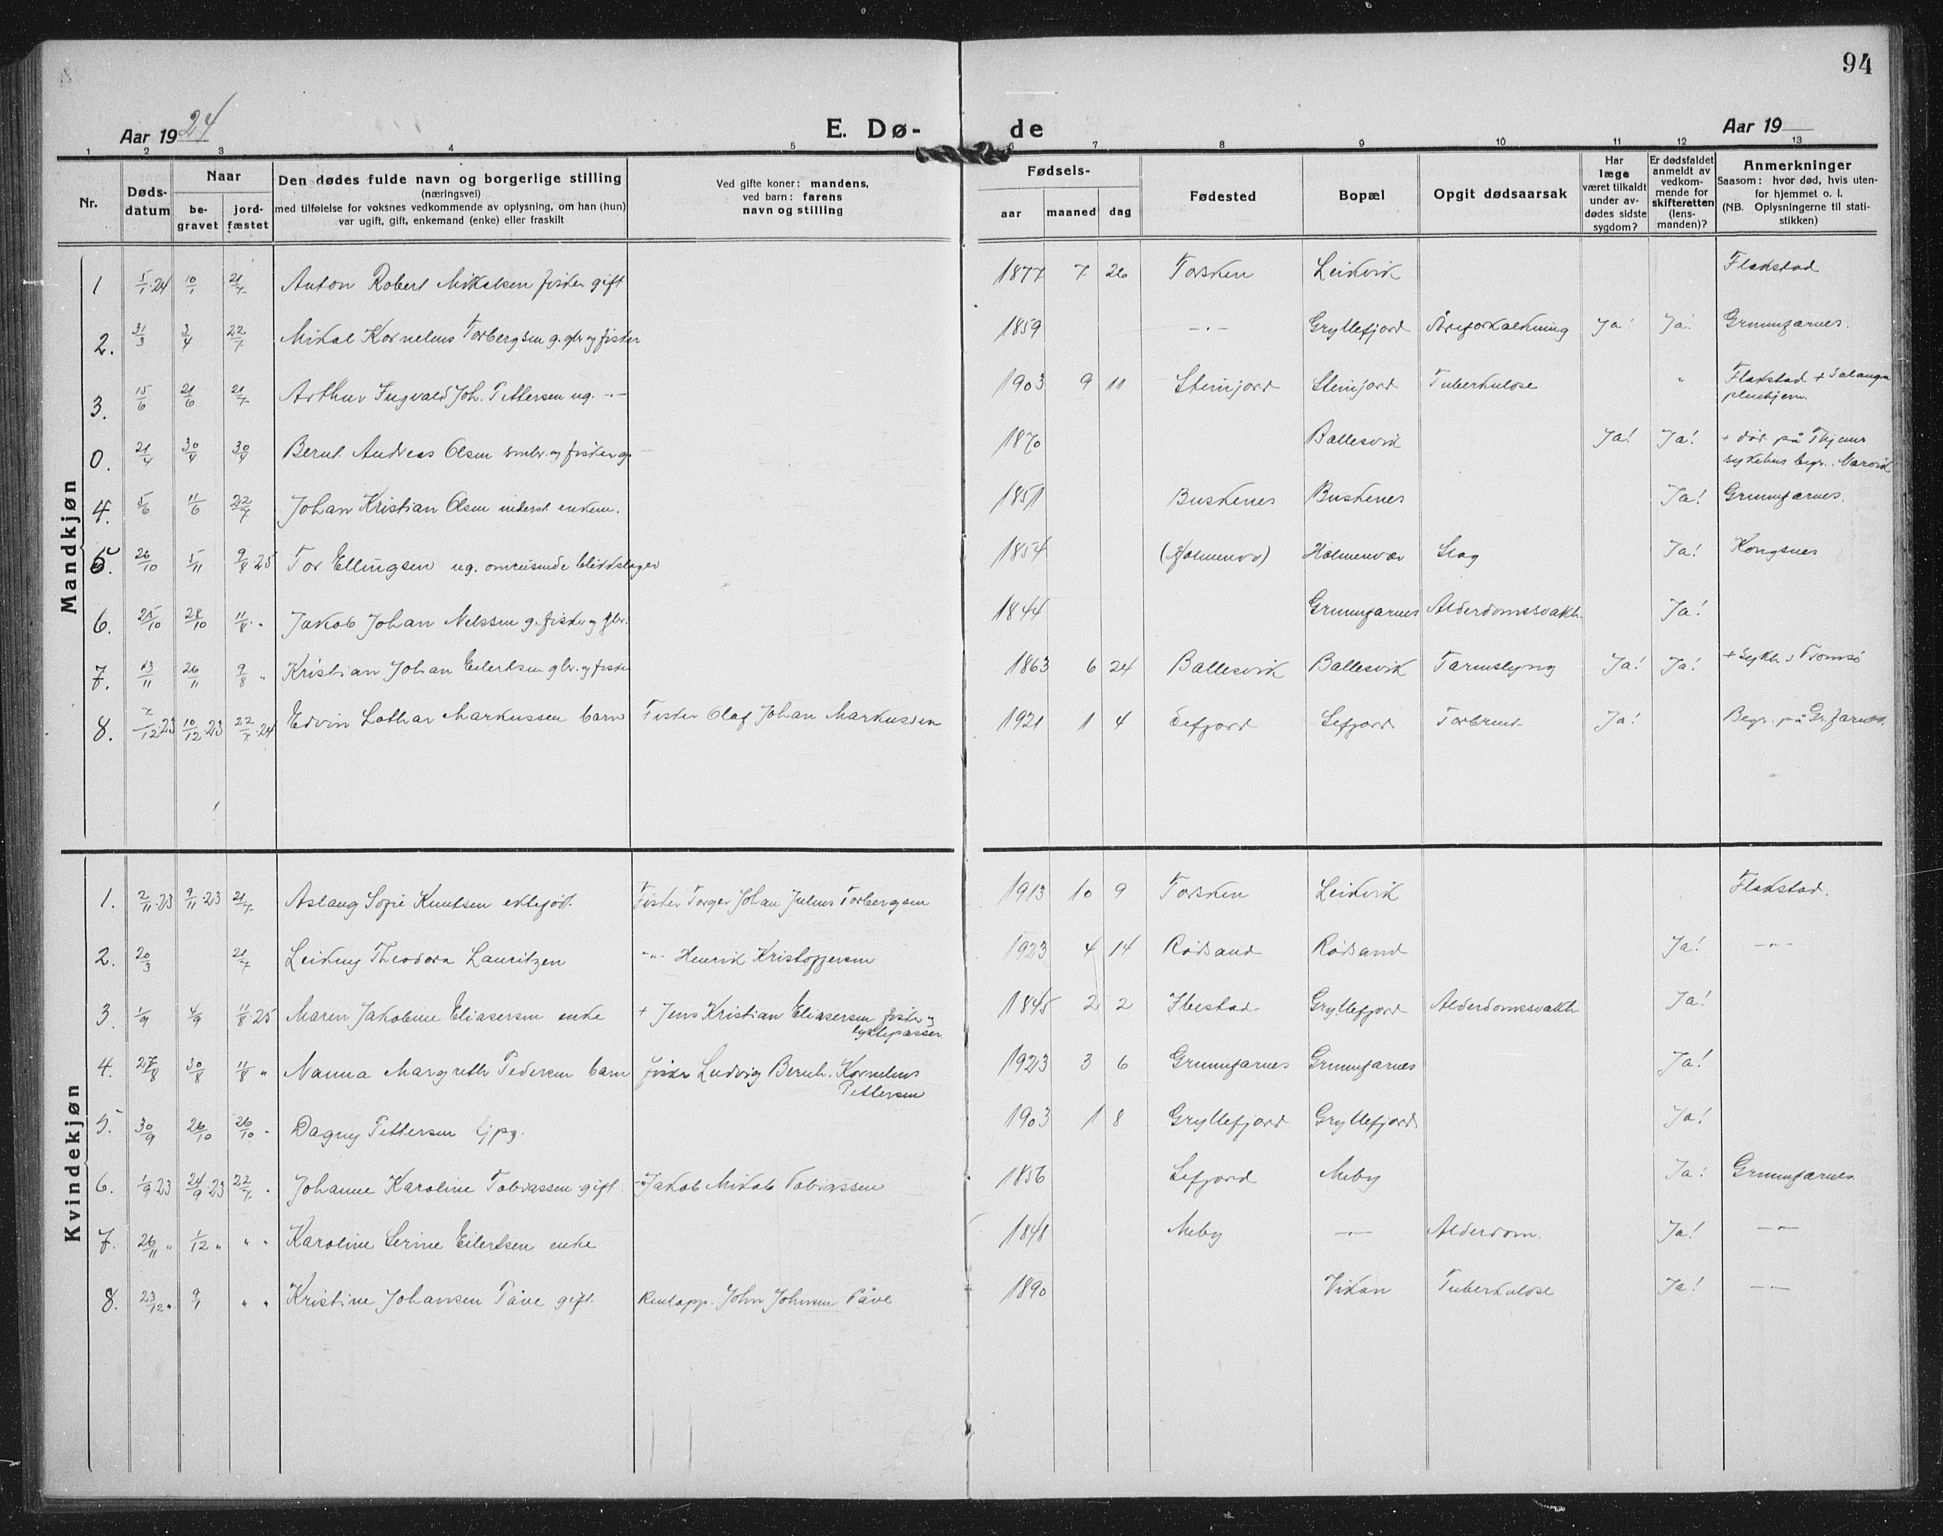 94
Aar 1924 E. Dø- de Aar 19
1 2 3 4 5 6 7 8 9 10 11 12 13
Nr. Døds-datum Naar begravet jordfæstet Den dødes fulde navn og borgerlige stilling (næringsvei) med tilføielse for voksnes vedkommende av oplysning, om han (hun) var ugift, gift, enkemand (enke) eller fraskilt Ved gifte koner: mandens, ved barn: farens navn og stilling Fødsels- aar maaned dag Fødested Bopæl Opgit dødsaarsak Har læge været tilkaldt under avdødes sidste sygdom? Er dødsfaldet anmeldt av vedkommende for skifteretten (lensmanden)? Anmerkninger Saasom: hvor død, hvis utenfor hjemmet o. l. (NB. Oplysningerne til statistikken)
Mandkjøn
1 5/1.24 10/1 21/7. Anton Robert Mikalsen fisker gift 1877 7 26 Torsken Leikvik Flakstad
2. 31/3 3/4 22/7 Mikal Kornelius Torbergsen g. gbr. og fisker 1859 -"- Gryllefjord Åreforkalkning Ja! Ja! Grunnfarnes.
3. 15/6 21/6 21/7 Arthur Ingvald Joh. Pettersen ug. -"- 1903 9 11 Steinfjord Steinfjord Tuberkulose " Flakstad + Salangn pleiehjem.
0. 21/4 30/4 30/4 Bernt Andreas Olsen smbr. og fisker g. 1870 Ballesvik Ja! Ja! + død på sykehus begr. Narvik
4. 5/6 11/6 22/7 Johan Kristian Olsen inderst enkem. 1851 Buskenes Buskenes Ja! Grunnfarnes.
5. 26/10 5/11 9/8.25 Tor Ellingsen ug. omreisende blikkslager 1854 (Holmenvær) Holmenvær Slag Ja! Kongsnes
6. 25/10 28/10 11/8. " Jakob Johan Nelssen g. fisker og gbr. 1844 Grunnfarnes Alderdomssvakh. Ja!
7. 13/11 26/11 9/8 " Kristian Johan Eilertsen gbr. og fisker 1863 6 24 Ballesvik Ballesvik Tarmslyng Ja! Ja! + Sykh. i Tromsø
8. 7/12.23 10/12.23 22/7.24 Edvin Lothar Markussen barn Fisker Olaf Johan Markussen 1921 1 4 Sefjord Sefjord Forbrent Ja! Begr. på Gr.farnes.
Kvindekjøn
1. 2/11.23 9/11.23 21/7. Aslaug Sofie Knutsen ektefød. Fisker Torger Johan Julius Torbergsen 1913 10 9 Torsken Leikvik Flakstad.
2. 20/3 21/7. Leikny Theodora Lauritzen -"- Henrik Kristoffersen 1923 4 14 Rødsand Rødsand Ja! -"-
3. 1/9 4/9 11/8.25 Maren Jakobine Eliasersen enke + Jens Kristian Eliasersen fisker og lyktepasser 1845 2 2 Ibestad Gryllefjord Alderdomssvakh. Ja!
4. 27/8 30/8 11/8 " Nanna Margreth Pedersen barn fisker Ludvig Bernh. Kornelius Pettersen 1923 3 6 Grunnfarnes Grunnfarnes Ja!
5. 30/9 26/10 26/10. Dagny Pettersen tjpg. 1903 1 8 Gryllefjord Gryllefjord Ja!
6. 1/9.23 24/9.23 22/7. Johanne Karoline Tobiassen gift. Jakob Mikal Tobiassen 1856 Sefjord Meby Ja! Grunnfarnes.
7. 26/11 " 1/12 " " " Karoline Serine Eilertsen enke 1848 Meby -"- Alderdom. Ja! -"-
8. 23/12 " 9/1 " " Kristine Johansen Påve gift. Reinlapp. John Johnsen Påve 1890 Vikan Tuberkulose Ja! -"-